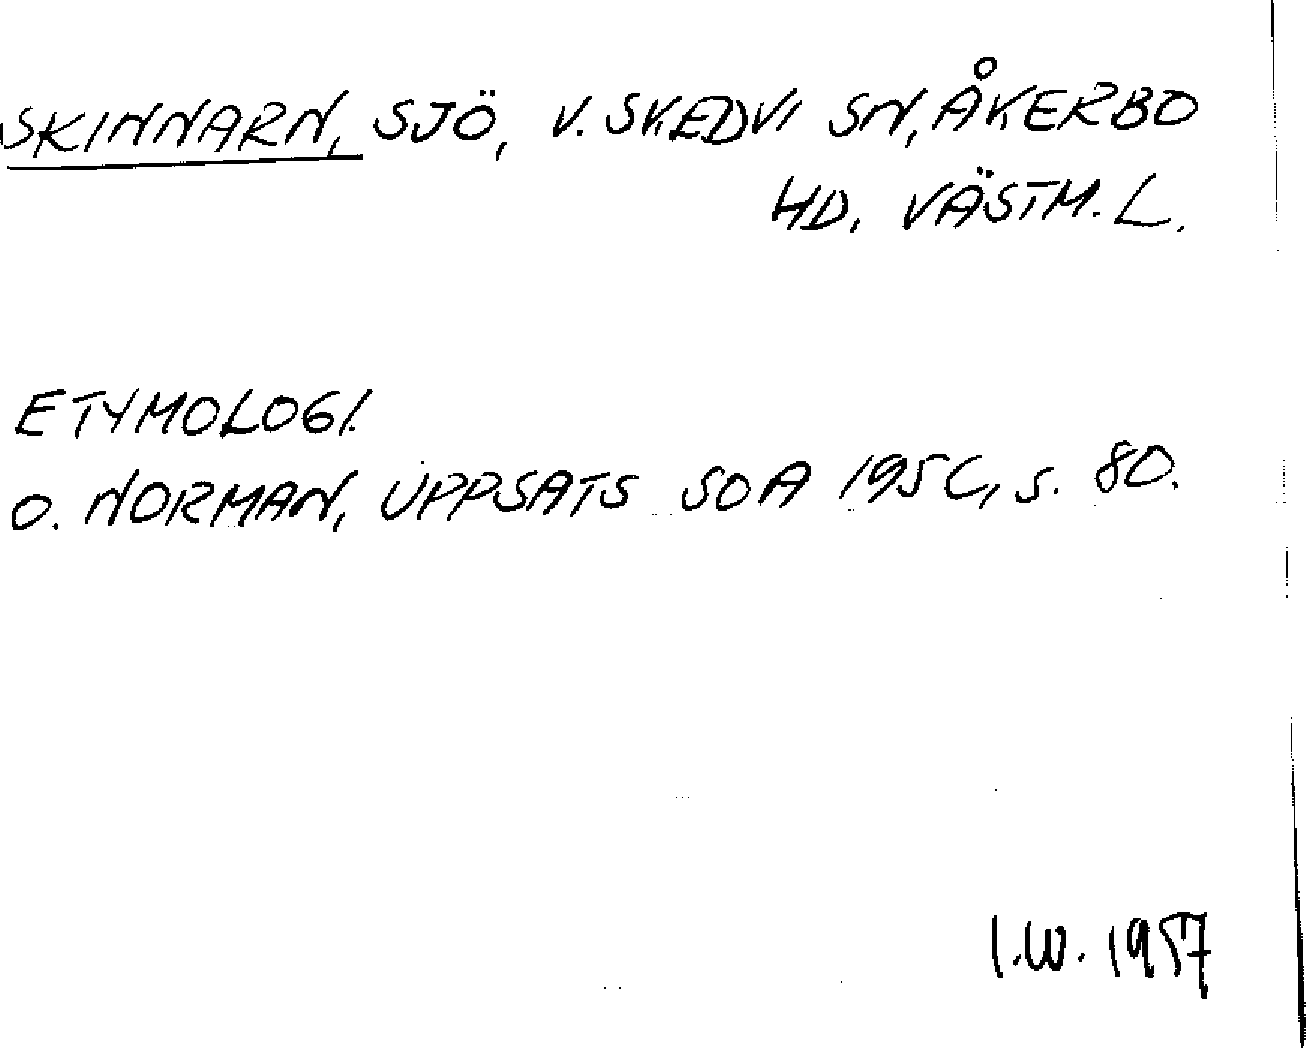 SKINNARN, SJÖ, V. SKEDVI SN, ÅKERBO
HD. VÄSTM. L.
ETYMOLOGI.
O. NORMAN, UPPSATS SOA 1956, s. 80.
I.W. 1957